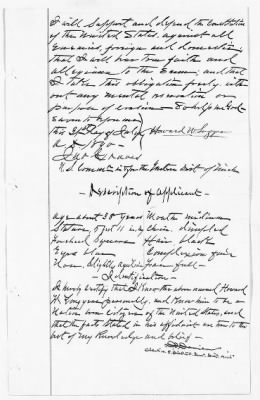 I will support and defend the Constitution
of the United States, against all
Enemies, foreign and domestic;
that I will bear true faith and
allegiance to the Same, and that
I take this obligation freely with
out any mental reservation or
purpose of evasion So help me God
Sworn to before me
this day of July Howard W.
A. D.
U.S. Commr in &for the Eastern Dist of Mich
Description of applicant
age about 38 years Mouth medium
Stature 5 ft 11 in Chin, dimpled
Forehead Hair black
Eyes blue Complexion fair
Nose, Slightly Face full
Identification
I hereby certify that I know the above named Howard
W. personally, and know him to be a
Native born citizen of the United States, and
that the facts stated in his affidavit are true to the
best of my knowledge and belief